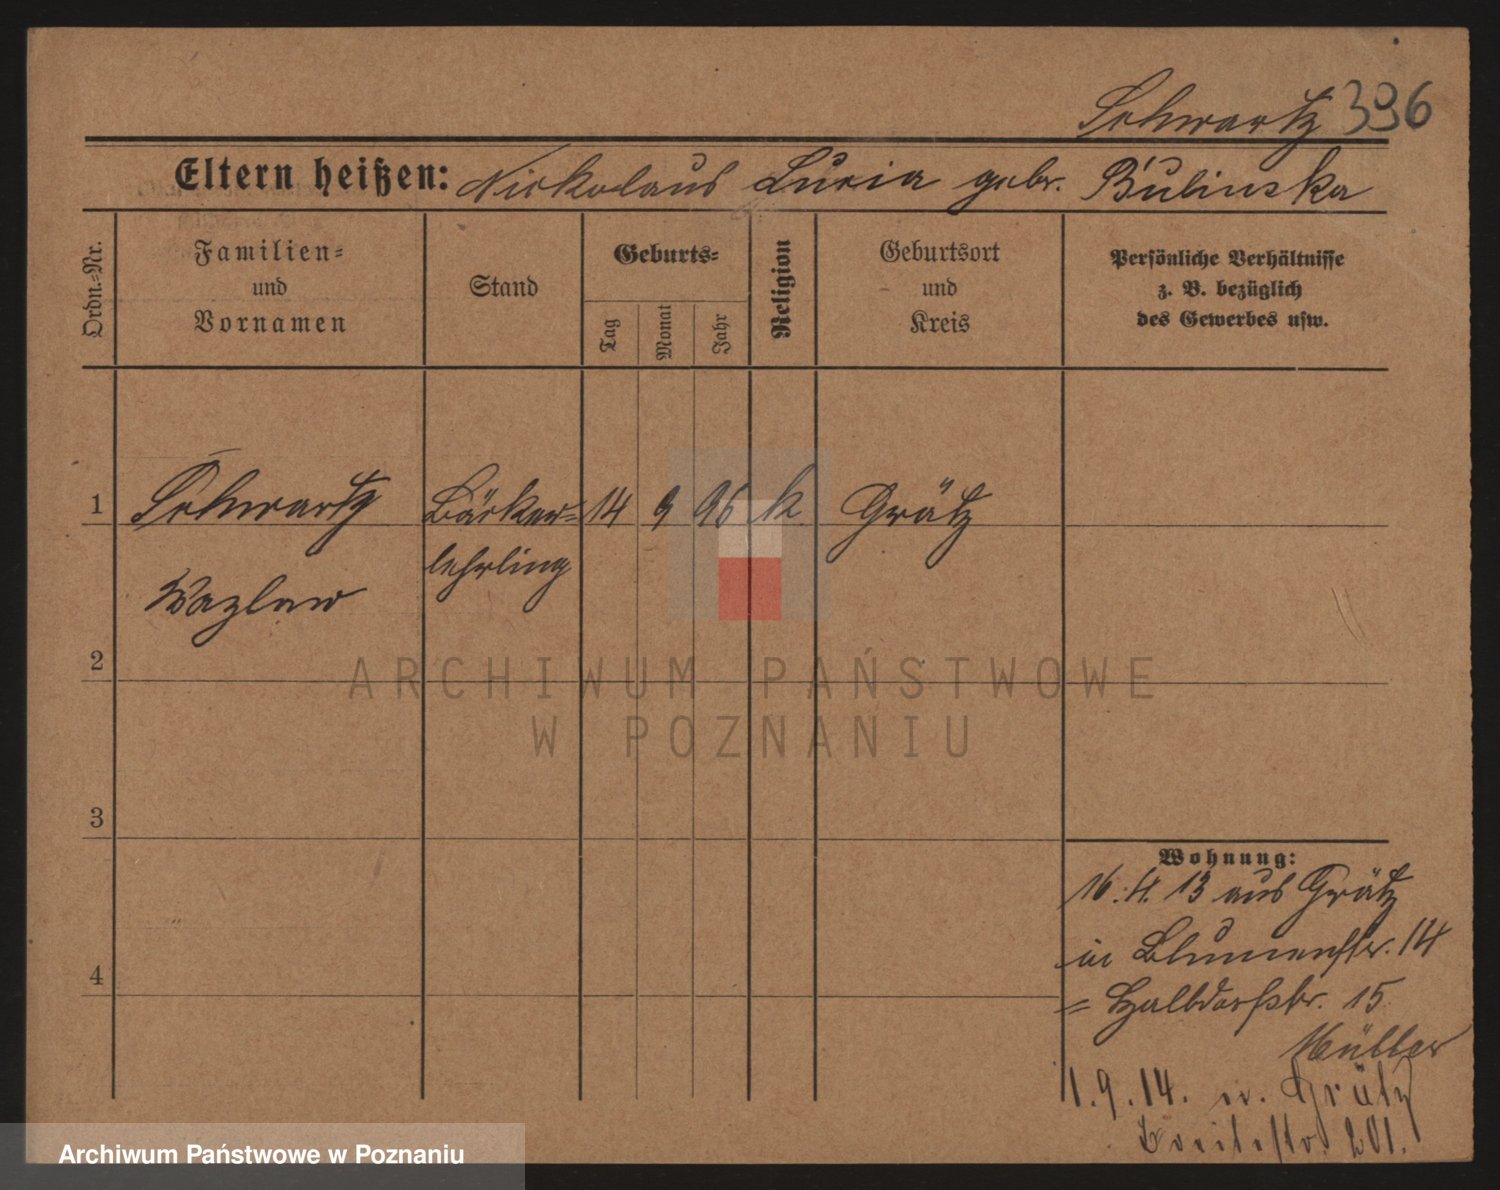 Schwartz 396
Eltern heißen: Nickolaus Luzia gebr. Bulinska
Ordn.-Nr.
Familien-
und
Vornamen
Stand
Geburts-
Tag
Monat
Jahr
Religion
Geburtsort
und
Kreis
Persönliche Verhältnisse
z. B. bezüglich
des Gewerbes usw.
1 Schwartz Bäcker- 14 9 96 k. Grätz
lehrling
Wazlaw
2
ARCHIWUM PAŃSTWOWE
W POZNANIU
3
Wohnung:
16. 4. 13 aus Grätz
in Blumenstr. 14
4
= Halbdorfstr. 15
Müller
1. 9. 14. n. Grätz
Breitestr. 201.
Archiwum Państwowe w Poznaniu